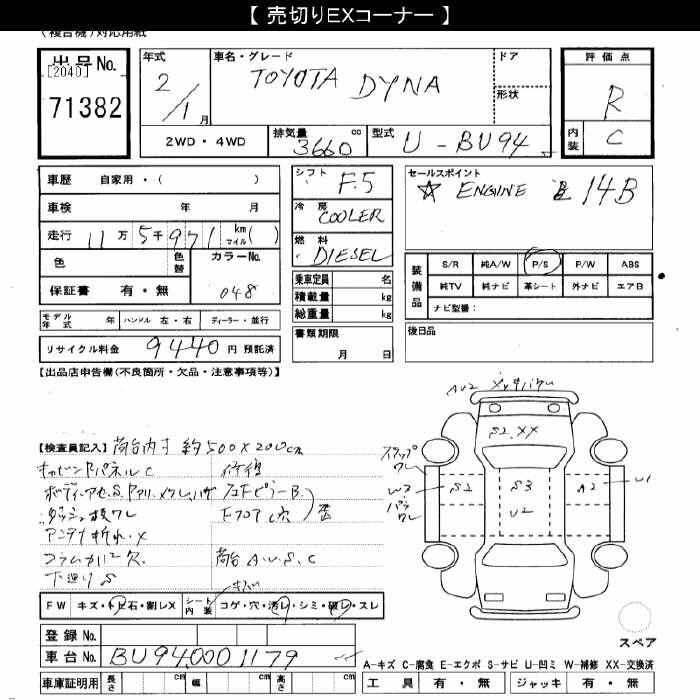 【 売切りEXコーナー 】
(複合機)対応用紙
出品No.
[2040]
71382
年式
2/1月
車名・グレード
TOYOTA DYNA
ドア
形状
評価点
R
内装 C
2WD・4WD
排気量 3660 cc
型式 U-BU94
車歴 自家用・( )
車検 年 月
走行 11万5千971 km マイル( )
色
色替
カラーNo. 048
保証書 有・無
シフト F.5
冷房 COOLER
燃料 DIESEL
乗車定員 名
積載量 kg
総重量 kg
書類期限
月 日
セールスポイント
☆ ENGINE 14B
装備品
S/R 純A/W P/S P/W ABS
純TV 純ナビ 革シート 外ナビ エアB
ナビ型番:
後日品
モデル年式 年 ハンドル 左・右 ディーラー・並行
リサイクル料金 9440 円 預託済
【出品店申告欄(不良箇所・欠品・注意事項等)】
【検査員記入】荷台内寸 約500×200cm
キャビンRパネルC
修復
アンテナ折れ・X
コラムカバー欠
下廻りS
荷台 A.U.S.C
S2.XX
S2
S3
U2
A2
U1
W3
FW キズ・トビ石・割レX シート内装 コゲ・穴・汚レ・シミ・破レ・スレ
登録No.
車台No. BU94.0001179
車庫証明用 長さ cm 幅 cm 高さ cm
スペア
A-キズ C-腐食 E-エクボ S-サビ U-凹ミ W-補修 XX-交換済
工具 有・無 ジャッキ 有・無